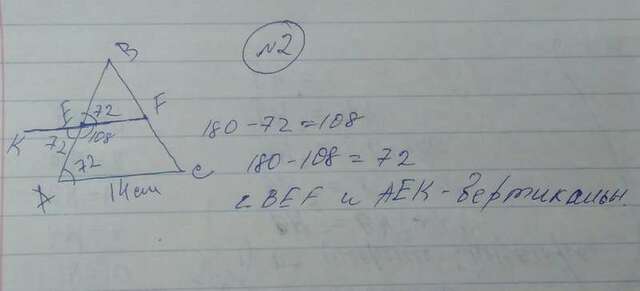 №2
B
E 72 F
K 72 108
72
A 14 см C
180-72=108
180-108=72
∠BEF и AEK-вертикальн